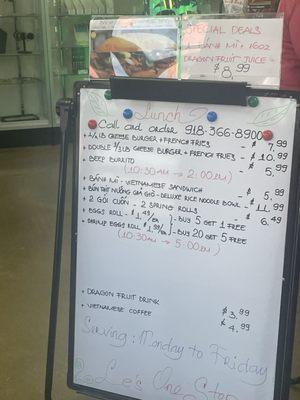 SPECIAL DEALS
1 BÁNH MÌ + 16OZ
DRAGON FRUIT JUICE
$8.99
Lunch
Call and order 918-366-8900
+ 1/4 lb CHEESE BURGER + FRENCH FRIES - $7.99
+ DOUBLE 1/3 lb CHEESE BURGER + FRENCH FRIES - $10.99
+ BEEF BURRITO - $5.99
(10:30AM → 2:00PM)
+ BÁNH MÌ - VIETNAMESE SANDWICH - $5.99
+ BÚN THỊT NƯỚNG CHẢ GIÒ - DELUXE RICE NOODLE BOWL - $11.99
+ 2 GỎI CUỐN - 2 SPRING ROLLS - $6.49
+ EGGS ROLL - $1.49/EA - BUY 5 GET 1 FREE
- SHRIMP EGGS ROLL $1.99/EA - BUY 20 GET 5 FREE
(10:30AM → 5:00PM)
+ DRAGON FRUIT DRINK $3.99
+ VIETNAMESE COFFEE $4.99
Serving: Monday to Friday
Le's One Stop